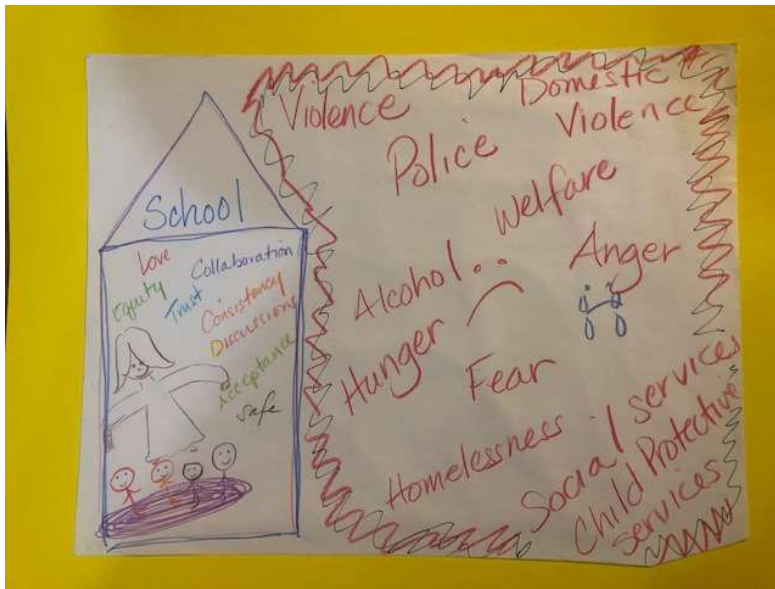 School
Love
Collaboration
Equity
Trust
Consistency
Discussions
Acceptance
safe
Violence
Domestic
Violence
Police
Welfare
Alcohol
Anger
Hunger
Fear
Homelessness
Social services
Child Protective
services